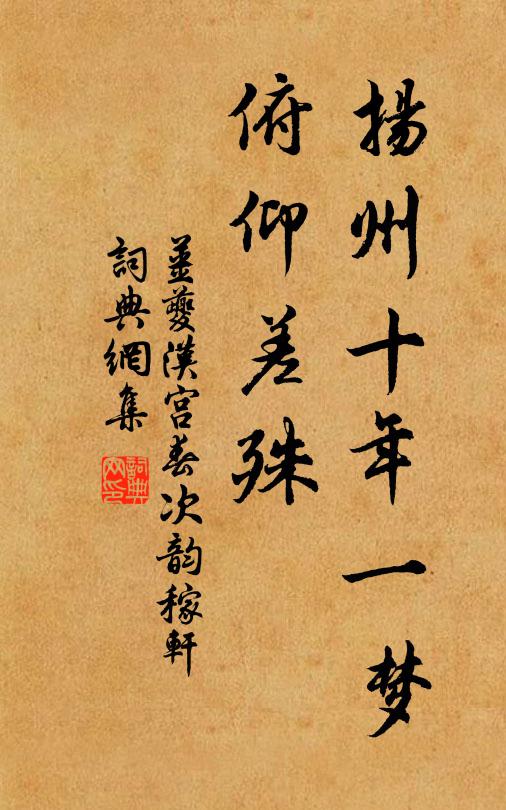 揚州十年一梦
俯仰差殊
姜夔漢宮春次韵稼軒
詞典網集
詞典
网印